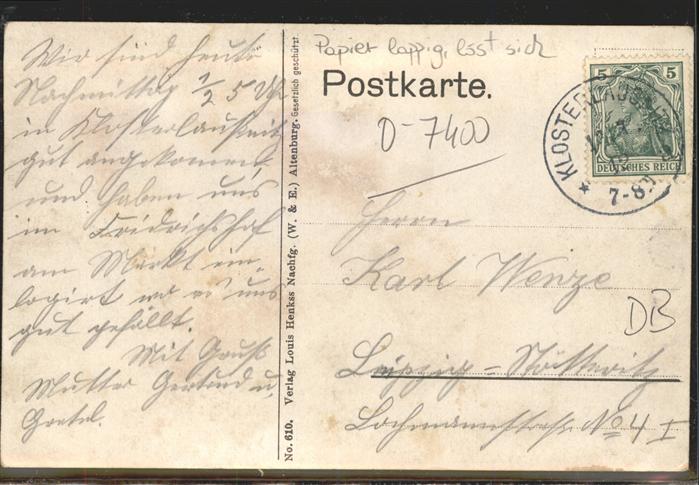 Wir sind heute
Nachmittag 1/2 5 Uhr
in Klosterlausnitz
gut angekommen
und haben uns
im Fridrichshof
am Markt ein-
logirt wo es uns
gut gefällt.
Mit Gruß
Mutter Gertrud u.
Gretel.
No. 610. Verlag Louis Henkss Nachfg. (W. & E.) Altenburg. Gesetzlich geschützt.
Papier lappig, löst sich
Postkarte.
D-7400
5 5
DEUTSCHES REICH
KLOSTERLAUSNITZ
7-8
Herrn
Karl Wenze
DB
Leipzig-Stötteritz
Lochmannstraße No 4 I